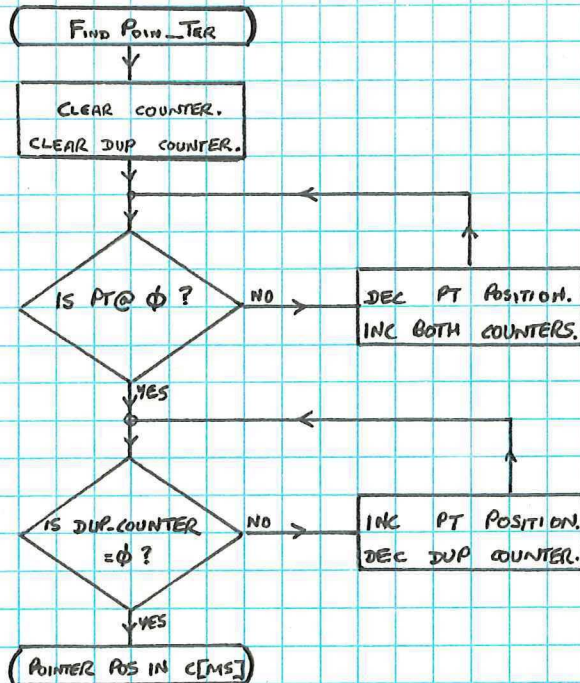 ( FIND POIN_TER )
CLEAR COUNTER.
CLEAR DUP COUNTER.
IS PT@ ϕ ?
NO
DEC PT POSITION.
INC BOTH COUNTERS.
YES
IS DUP-COUNTER
=ϕ ?
NO
INC PT POSITION.
DEC DUP COUNTER.
YES
( POINTER POS IN C[MS] )